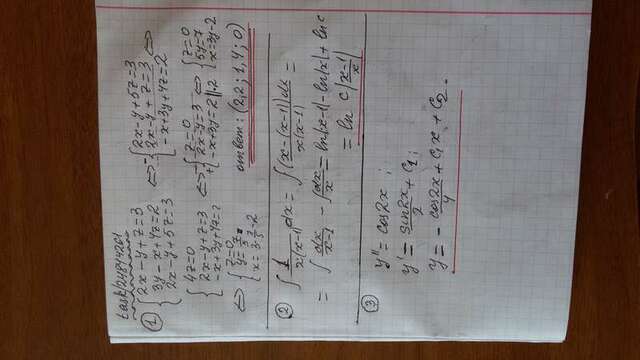 task/24814261
① { 2x-y+z=3 ; 3y-x+4z=2 ; 2x-y+5z=3 ⇔ { 2x-y+5z=3 ; 2x-y+z=3 ; -x+3y+4z=2 ⇔
{ 4z=0 ; 2x-y+z=3 ; -x+3y+4z=2 ⇔ { z=0 ; 2x-y=3 ; -x+3y=2 ||·2 ⇔ { z=0 ; 5y=7 ; x=3y-2
⇔ { z=0 ; y=7/5 ; x=3·7/5-2
ответ: (2,2; 1,4; 0)
② ∫ 1/x(x-1) dx = ∫ (x-(x-1))dx/x(x-1) =
= ∫ dx/x-1 - ∫ dx/x = ln|x-1| - ln|x| + ln c
= ln c|x-1/x|
③
y'' = cos2x ;
y' = sin2x/2 + C₁ ;
y = - cos2x/4 + C₁x + C₂ .